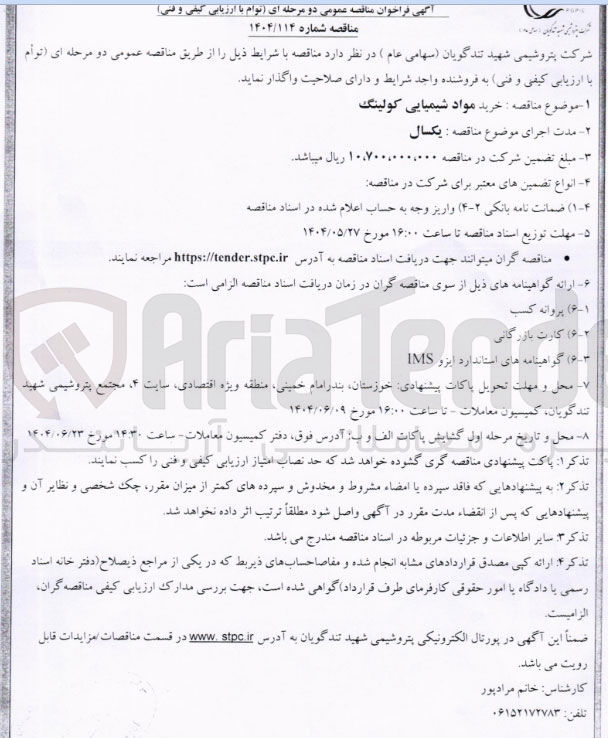 آگهی فراخوان مناقصه عمومی دو مرحله ای (توأم با ارزیابی کیفی و فنی)
مناقصه شماره ۱۴۰۴/۱۱۴
شرکت پتروشیمی شهید تندگویان (سهامی عام ) در نظر دارد مناقصه با شرایط ذیل را از طریق مناقصه عمومی دو مرحله ای (توأم
با ارزیابی کیفی و فنی) به فروشنده واجد شرایط و دارای صلاحیت واگذار نماید.
۱-موضوع مناقصه : خرید مواد شیمیایی کولینگ
۲- مدت اجرای موضوع مناقصه : یکسال
۳- مبلغ تضمین شرکت در مناقصه ۱۰،۷۰۰،۰۰۰،۰۰۰ ریال میباشد.
۴- انواع تضمین های معتبر برای شرکت در مناقصه:
۱-۴) ضمانت نامه بانکی ۲-۴) واریز وجه به حساب اعلام شده در اسناد مناقصه
۵- مهلت توزیع اسناد مناقصه تا ساعت ۱۶:۰۰ مورخ ۱۴۰۴/۰۵/۲۷
• مناقصه گران میتوانند جهت دریافت اسناد مناقصه به آدرس https://tender.stpc.ir مراجعه نمایند.
۶- ارائه گواهینامه های ذیل از سوی مناقصه گران در زمان دریافت اسناد مناقصه الزامی است:
۶-۱) پروانه کسب
۶-۲) کارت بازرگانی
۶-۳) گواهینامه های استاندارد ایزو IMS
۷- محل و مهلت تحویل پاکات پیشنهادی: خوزستان، بندرامام خمینی، منطقه ویژه اقتصادی، سایت ۴، مجتمع پتروشیمی شهید
تندگویان، کمیسیون معاملات - تا ساعت ۱۶:۰۰ مورخ ۱۴۰۴/۰۶/۰۹
۸- محل و تاریخ مرحله اول گشایش پاکات الف و ب: آدرس فوق، دفتر کمیسیون معاملات- ساعت ۱۴:۳۰ مورخ ۱۴۰۴/۰۶/۲۳
تذکر۱: پاکت پیشنهادی مناقصه گری گشوده خواهد شد که حد نصاب امتیاز ارزیابی کیفی و فنی را کسب نمایند.
تذکر۲: به پیشنهادهایی که فاقد سپرده یا امضاء مشروط و مخدوش و سپرده های کمتر از میزان مقرر، چک شخصی و نظایر آن و
پیشنهادهایی که پس از انقضاء مدت مقرر در آگهی واصل شود مطلقاً ترتیب اثر داده نخواهد شد.
تذکر۳: سایر اطلاعات و جزئیات مربوطه در اسناد مناقصه مندرج می باشد.
تذکر۴: ارائه کپی مصدق قراردادهای مشابه انجام شده و مفاصاحساب‌های ذیربط که در یکی از مراجع ذیصلاح(دفتر خانه اسناد
رسمی یا دادگاه یا امور حقوقی کارفرمای طرف قرارداد)گواهی شده است، جهت بررسی مدارک ارزیابی کیفی مناقصه‌گران،
الزامیست.
ضمناً این آگهی در پورتال الکترونیکی پتروشیمی شهید تندگویان به آدرس www. stpc.ir در قسمت مناقصات/مزایدات قابل
رویت می باشد.
کارشناس: خانم مرادپور
تلفن: ۰۶۱۵۲۱۷۲۷۸۳
AriaTende